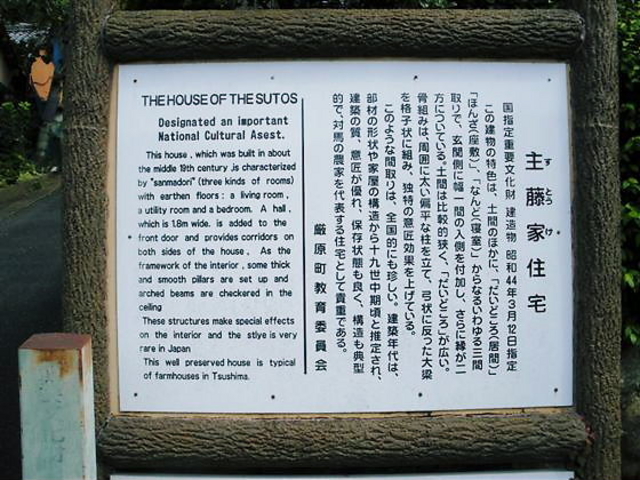 THE HOUSE OF THE SUTOS
Designated an important
National Cultural Asest.
This house , which was built in about
the middle 19th century ,is characterized
by "sanmadori" (three kinds of rooms)
with earthen floors : a living room ,
a utility room and a bedroom. A hall ,
which is 1.8m wide. is added to the
front door and provides corridors on
both sides of the house . As the
framework of the interior , some thick
and smooth pillars are set up and
arched beams are checkered in the
ceiling
These structures make special effects
on the interior and the stlye is very
rare in Japan
This well preserved house is typical
of farmhouses in Tsushima.
主藤家住宅
すとうけ
国指定重要文化財 建造物 昭和44年3月12日指定
この建物の特色は、土間のほかに、「だいどころ(居間)」
「ほんざ(座敷)」、「なんど(寝室)」からなるいわゆる三間
取りで、玄関側に幅一間の入側を付加し、さらに縁が二
方についている。土間は比較的狭く、「だいどころ」が広い。
骨組みは、周囲に太い扁平な柱を立て、弓状に反った大梁
を格子状に組み、独特の意匠効果を上げている。
このような間取りは、全国的にも珍しい。建築年代は、
部材の形状や家屋の構造から十九世中期頃と推定され、
建築の質、意匠が優れ、保存状態も良く、構造も典型
的で、対馬の農家を代表する住宅として貴重である。
厳原町教育委員会